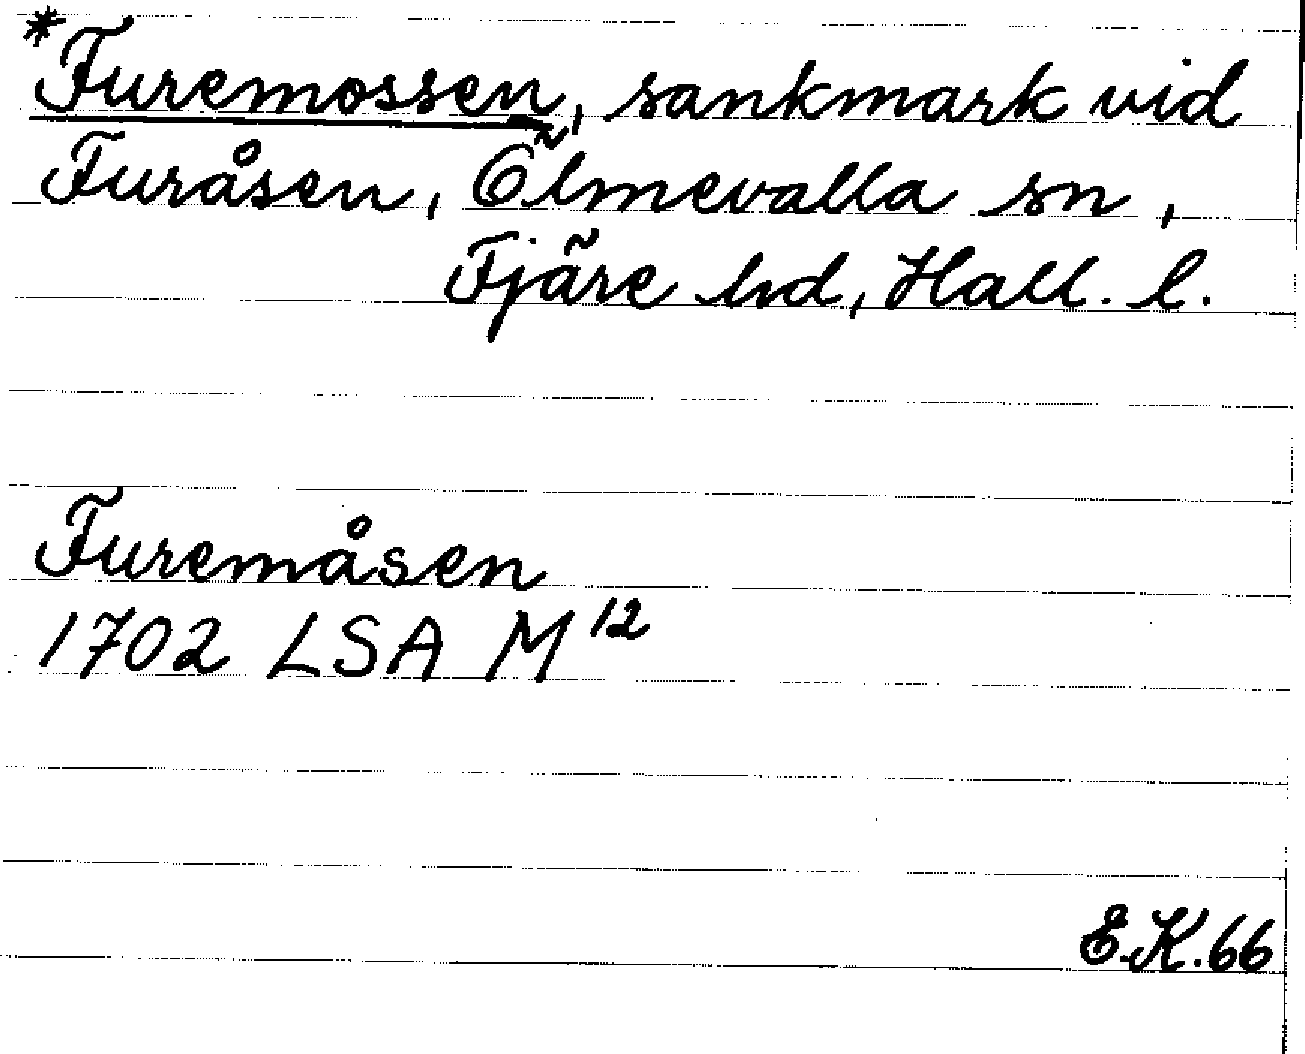 *Furemossen, sankmark vid
Furåsen, Ölmevalla sn,
Fjäre hd, Hall. l.
Furemåsen
1702 LSA M12
E.K.66